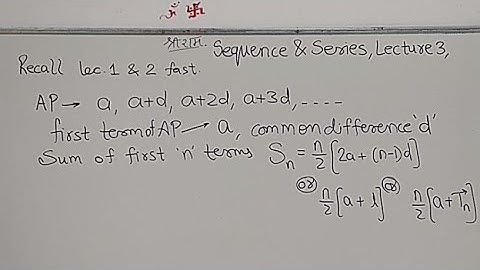 ॐ 卐
श्रीराम. Sequence & Series, Lecture 3,
Recall lec. 1 & 2 fast.
AP → a, a+d, a+2d, a+3d, ----
first term of AP → a, common difference 'd'
Sum of first 'n' terms Sn = n/2 [2a + (n-1)d]
(or) n/2 [a + l] (or) n/2 [a + Tn]